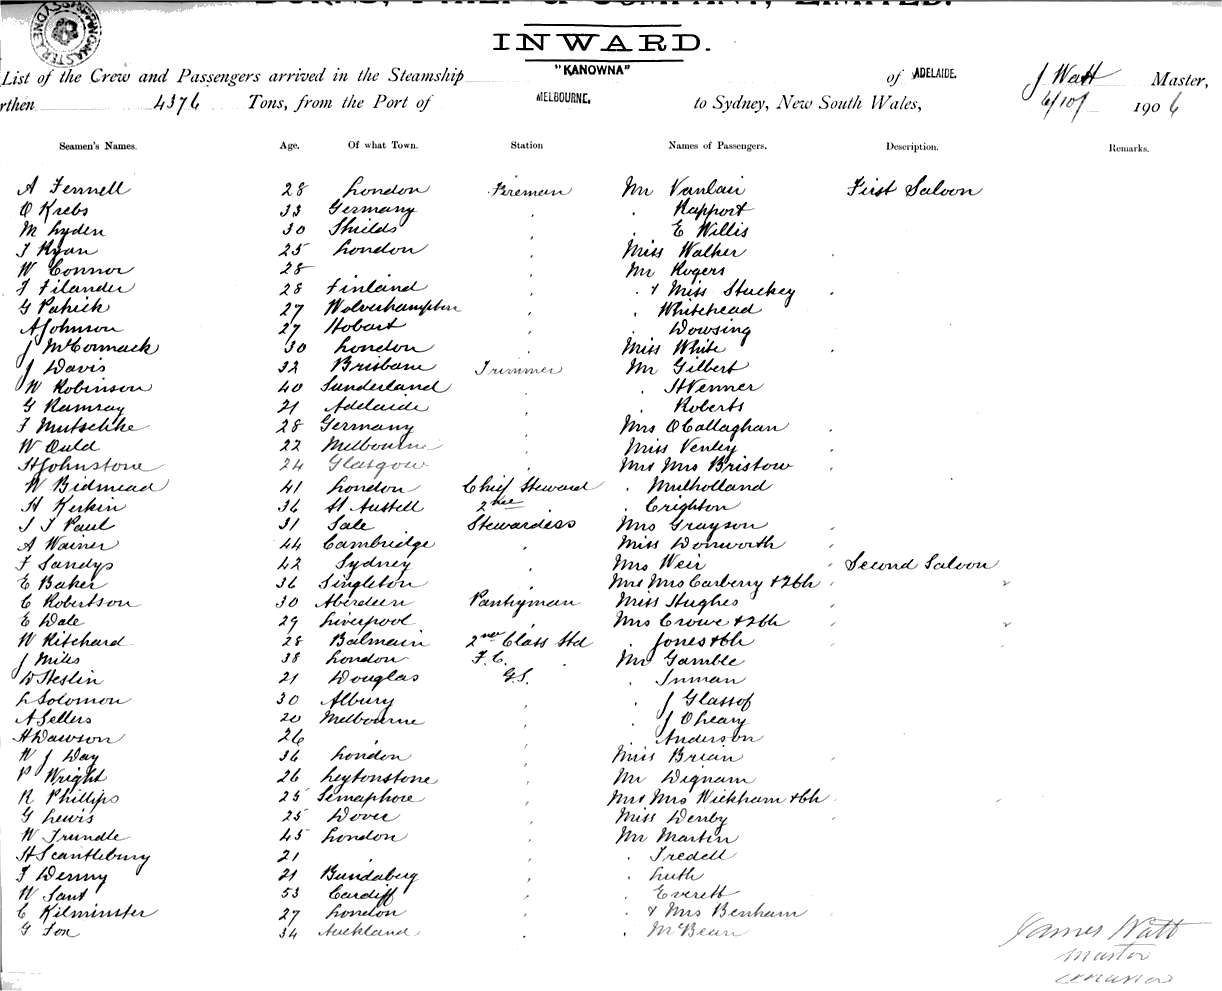 BURNS, PHILP & COMPANY, LIMITED.
SHIPPING MASTER SYDNEY
INWARD.
List of the Crew and Passengers arrived in the Steamship "KANOWNA" of ADELAIDE. J Watt Master,
rthen 4376 Tons, from the Port of MELBOURNE. to Sydney, New South Wales, 6/10/ 1906
Seamen's Names. Age. Of what Town. Station Names of Passengers. Description. Remarks.
A Fennell 28 London Fireman Mr Vanlair First Saloon
O Krebs 33 Germany " Rapport
M Lyden 30 Shields " E Willis
J Ryan 25 London " Miss Walker
W Connor 28 " Mr Rogers
F Filander 28 Finland " " & Miss Stuckey
G Patrick 27 Wolverhampton " Whitehead
A Johnson 27 Hobart " Dowsing
J McCormack 30 London " Miss White
J Davis 32 Brisbane Trimmer Mr Gilbert
W Robinson 40 Sunderland " H Venner
G Ramsay 21 Adelaide " Roberts
F Mutschke 28 Germany " Mrs O'Callaghan
W Ould 22 Melbourne " Miss Venley
H Johnstone 24 Glasgow " Mr & Mrs Bristow
W Bidmead 41 London Chief Steward " Mulholland
H Kerkin 36 St Austell 2nd " Crighton
J J Paul 31 Sale Stewardess Mrs Grayson
A Warner 44 Cambridge " Miss Donworth
F Sandys 42 Sydney " Mrs Weir Second Saloon
E Baker 36 Singleton " Mr & Mrs Carberry & 2 Ch
C Robertson 30 Aberdeen Pantryman Miss Hughes
E Dale 29 Liverpool " Mrs Crowe & 2 Ch
W Ritchard 28 Balmain 2nd Class Std " Jones & Ch
J Miles 38 London F.C. Mr Gamble
D Heslin 21 Douglas G.S. " Inman
L Solomon 30 Albury " " J Glassof
A Sellers 20 Melbourne " " J O'Leary
H Dawson 26 " " " Anderson
W J Day 36 London " Miss Brian
P Wright 26 Leytonstone " Mr Dignam
R Phillips 25 Semaphore " Mr & Mrs Wickham & Ch
G Lewis 25 Dover " Miss Denby
W Trundle 45 London " Mr Martin
H Scantlebury 21 " " " Tredell
F Denny 21 Bundaberg " " Luth
W Sant 53 Cardiff " " Everett
C Kilminster 27 London " " & Mrs Benham
G Fox 34 Auckland " " McBean
James Watt
Master